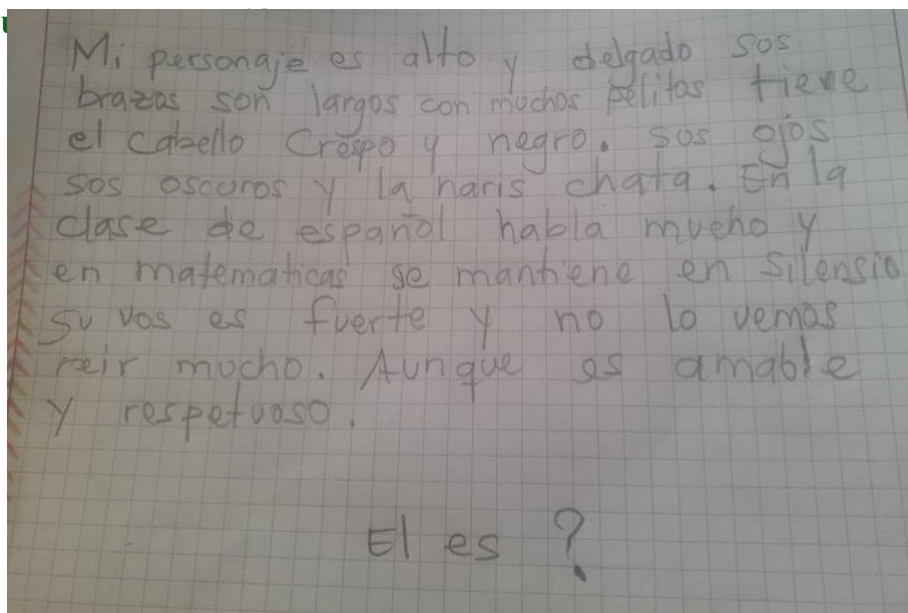 Mi personaje es alto y delgado sos
brazos son largos con muchos pelitos tiene
el cabello Crespo y negro. sos ojos
sos oscuros y la naris chata. En la
clase de español habla mucho y
en matematicas se mantiene en silensio
su vos es fuerte y no lo vemos
reir mucho. Aunque es amable
y respetuoso.
El es ?